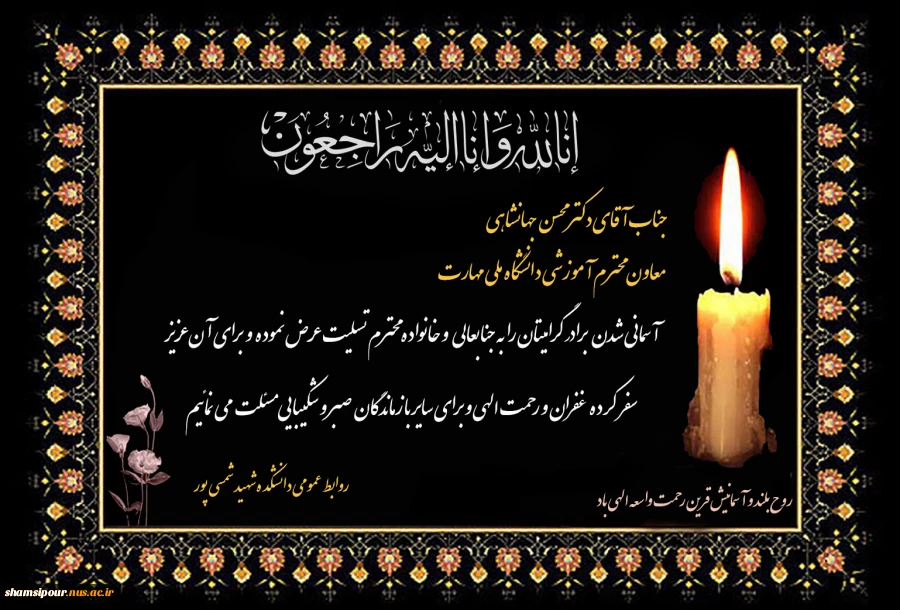 إنا لله و إنا إلیه راجعون
جناب آقای دکتر محسن جهانشاهی
معاون محترم آموزشی دانشگاه ملی مهارت
آسمانی شدن برادر گرامیتان را به جنابعالی و خانواده محترم تسلیت عرض نموده و برای آن عزیز
سفر کرده غفران و رحمت الهی و برای سایر بازماندگان صبر و شکیبایی مسئلت می نمائیم
روابط عمومی دانشکده شهید شمسی پور
روح بلند و آسمانیش قرین رحمت واسعه الهی باد
shamsipour.nus.ac.ir